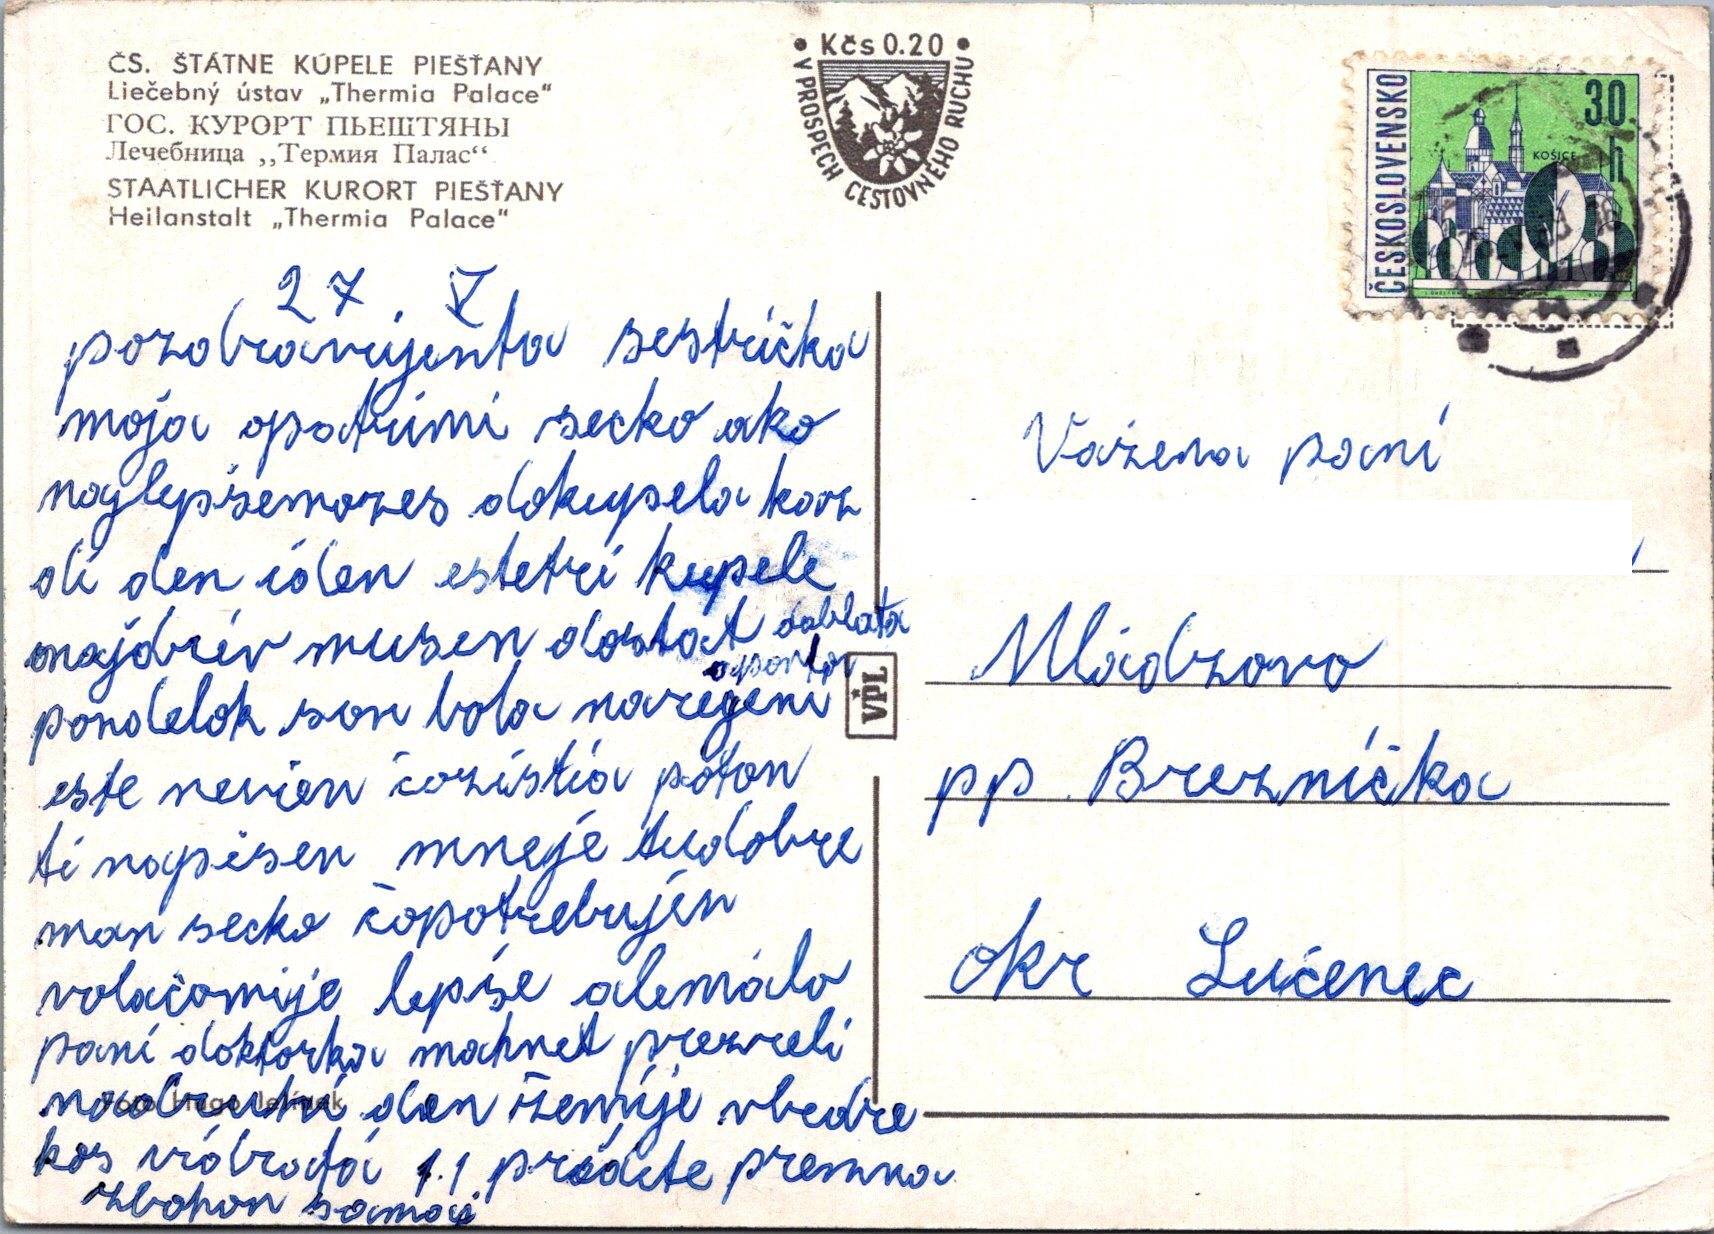 ČS. ŠTÁTNE KÚPELE PIEŠŤANY
Liečebný ústav „Thermia Palace“
ГОС. КУРОРТ ПЬЕШТЯНЫ
Лечебница ,,Термия Палас“
STAATLICHER KURORT PIEŠŤANY
Heilanstalt „Thermia Palace“
• Kčs 0.20 •
V PROSPECH CESTOVNÉHO RUCHU
ČESKOSLOVENSKO
30 h
KOŠICE
27 V
pozdravujenta sestrička
moja opatrími secko ako
najlepšemozes dokupela kaz
di den iden estetrí kupele
najdrív musen dostat dablata
aparta
pondelok son bola naregeni
este nevien čozistia poton
ti napisen mneje tudobre
man secko čopotrebujen
volačomije lepše alemálo
paní doktorka mahnet prezreli
nadruhí den žemije vbedre
kos 1.1 príďte premna
zbohon
Foto: Hugo
VPL
Vazena paní
Mládzovo
pp Brezníčka
okr Lučenec